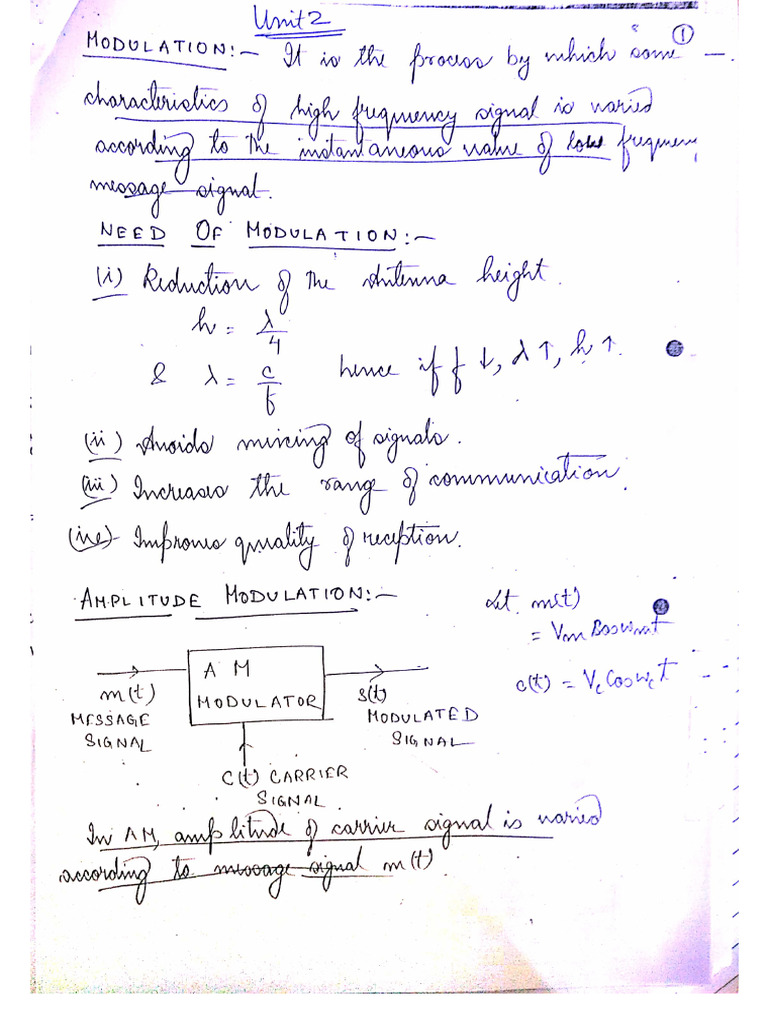 Unit 2
①
MODULATION:- It is the process by which some
characteristics of high frequency signal is varied
according to the instantaneous value of low frequency
message signal.
NEED OF MODULATION:-
(i) Reduction of the Antenna height.
h = λ/4
& λ = c/f hence if f ↓, λ ↑, h ↑.
(ii) Avoids mixing of signals.
(iii) Increases the range of communication.
(iv) Improves quality of reception.
AMPLITUDE MODULATION:-
Let m(t)
= Vm Cos wmt
c(t) = Vc Cos wct
A M
MODULATOR
m(t)
MESSAGE
SIGNAL
S(t)
MODULATED
SIGNAL
C(t) CARRIER
SIGNAL
In AM, amplitude of carrier signal is varied
according to message signal m(t)